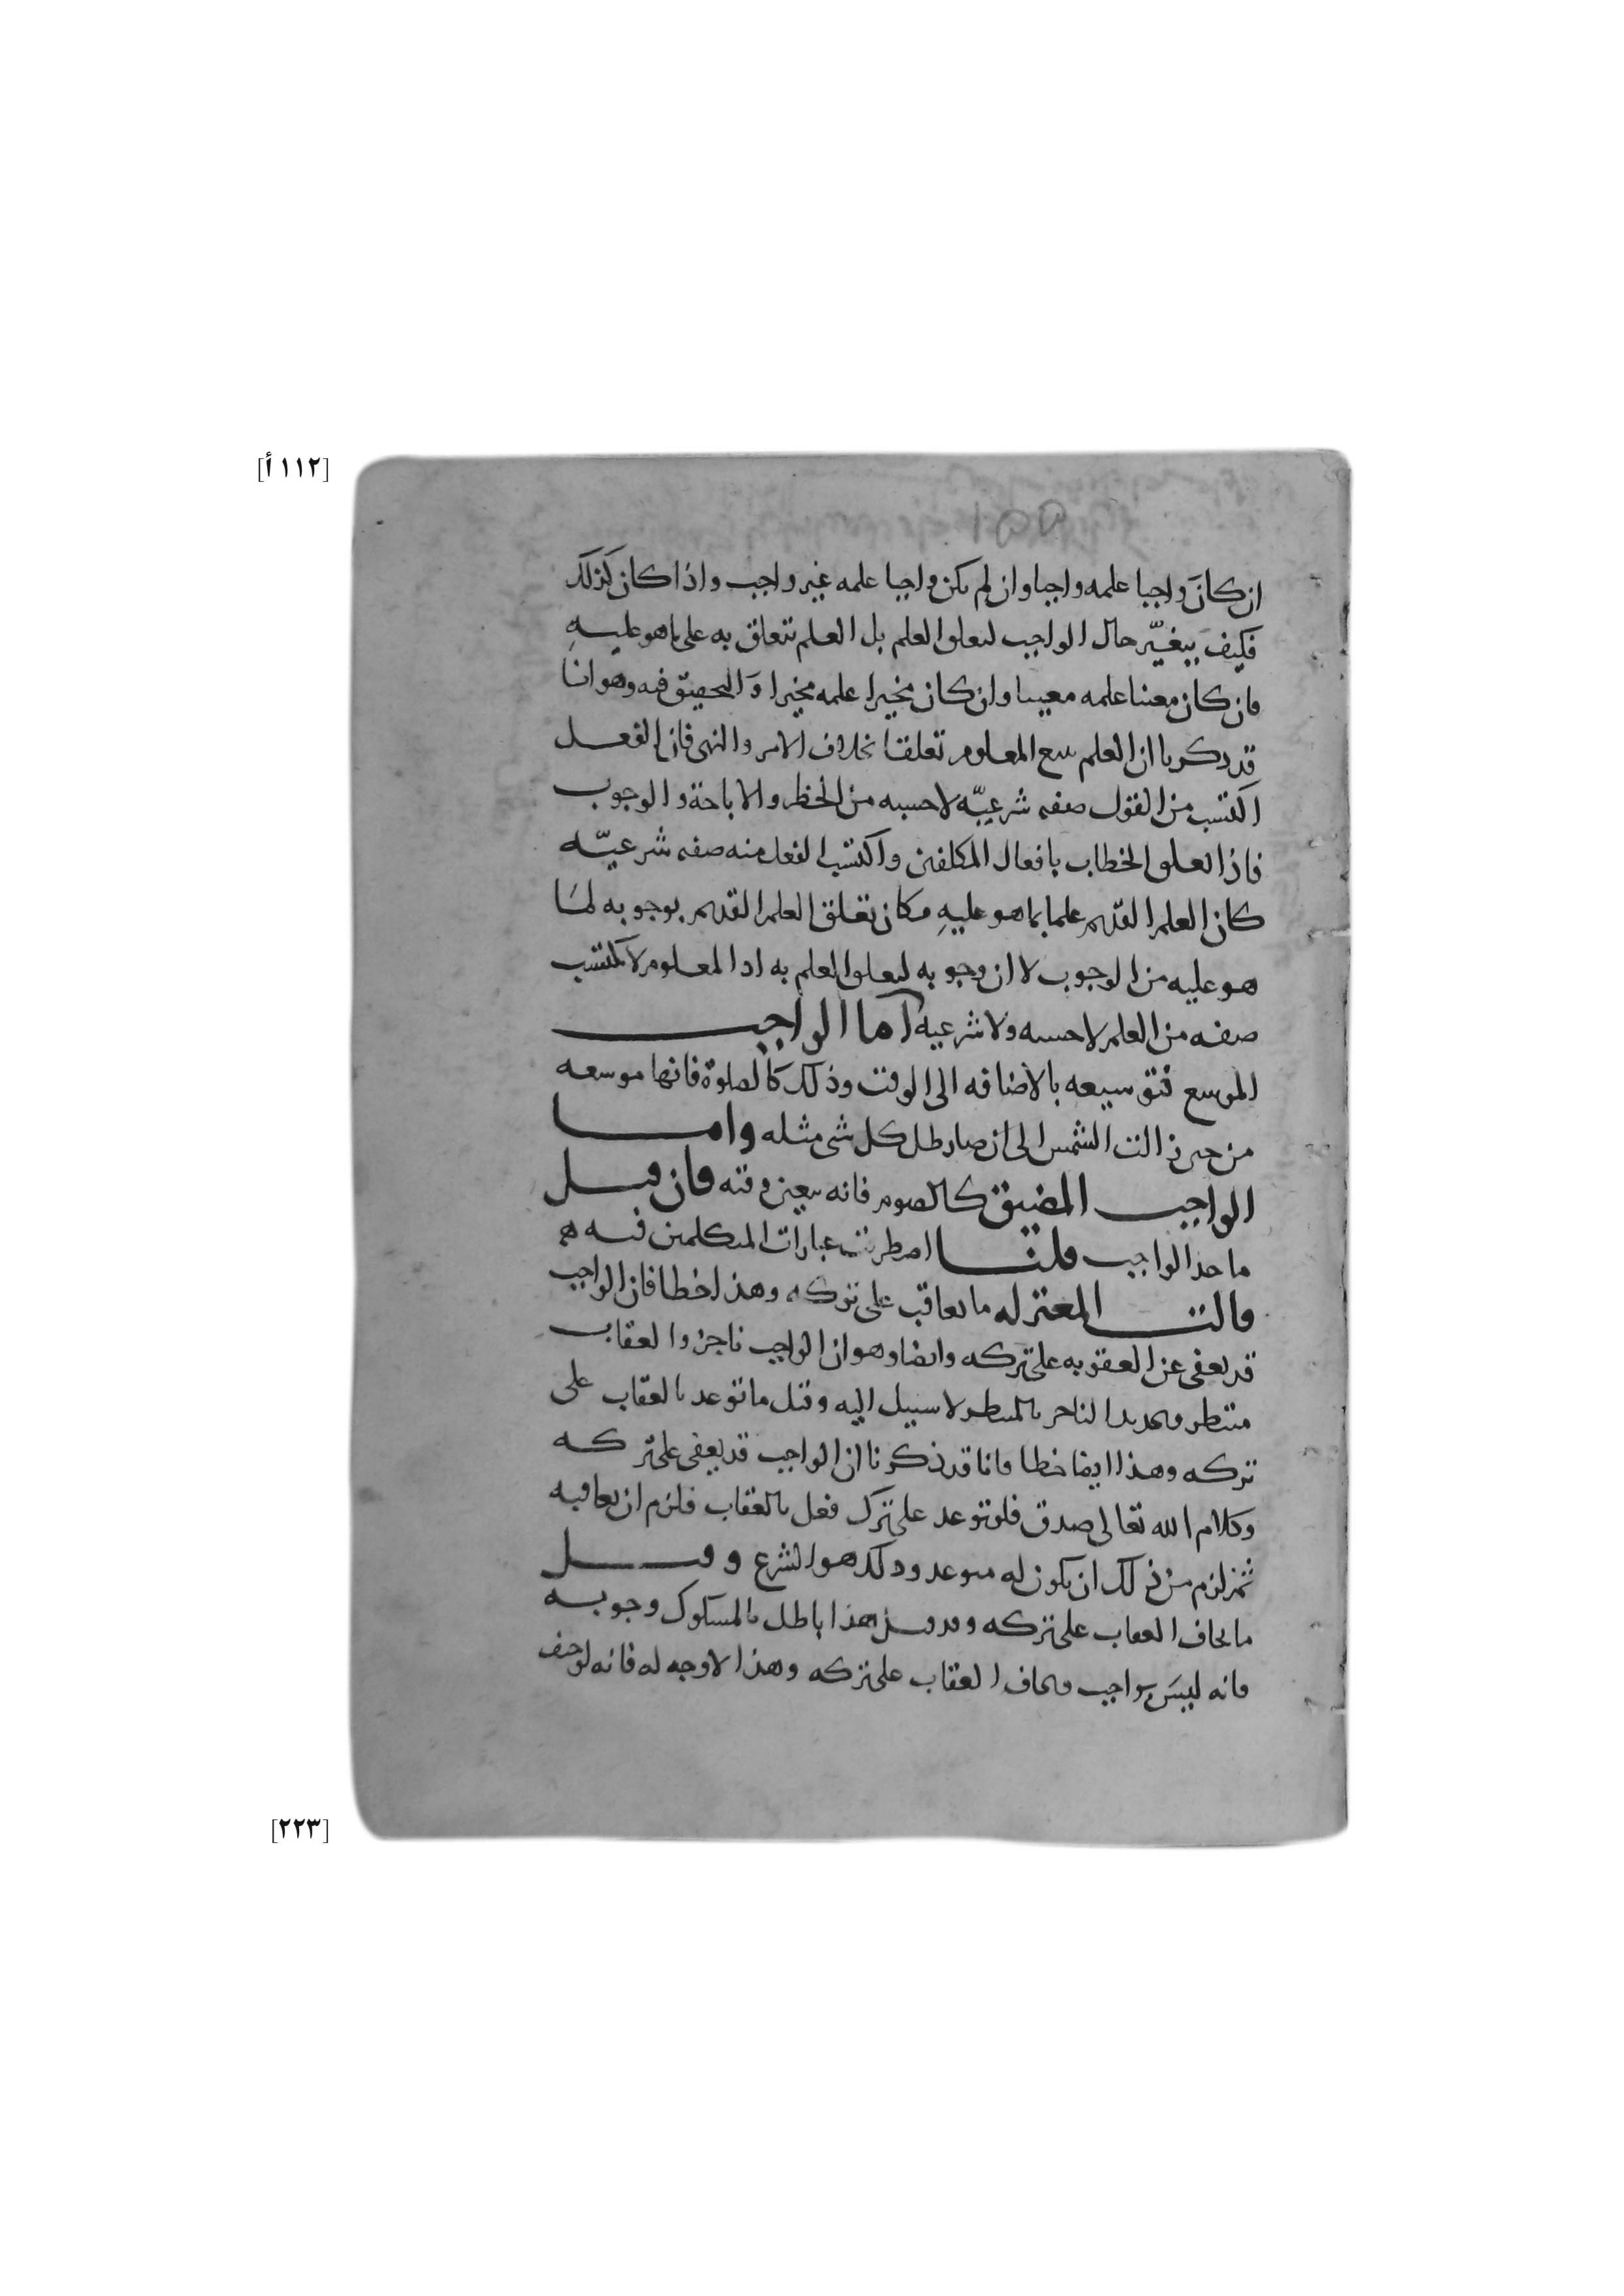 [١١٢ أ]
ان كان واجبا علمه واجبا وان لم يكن واجبا علمه غير واجب واذا كان كذلك
فكيف يتغيّر حال الواجب لتعلق العلم بل العلم تتعلق به على ما هو عليه
فان كان معينا علمه معينا وان كان مخيرا علمه مخيرا والتحقيق فيه وهو انا
قد ذكرنا ان العلم يتبع المعلوم تعلقا بخلاف الامر والنهى فان الفعل
اكتسب من القول صفة شرعيّه لا حسيه من الحظر والاباحة والوجوب
فاذا تعلق الخطاب بافعال المكلفين واكتسب الفعل منه صفه شرعيّه
كان العلم القديم علما بما هو عليه فكان تعلق العلم القديم بوجوبه لما
هو عليه من الوجوب لا ان وجوبه لتعلق العلم به اذ المعلوم لا يكتسب
صفه من العلم لا حسيه ولا شرعيه اما الواجب
الموسع فتوسيعه بالاضافه الى الوقت وذلك كالصلوة فانها موسعه
من حين زالت الشمس الى ان صار ظل كل شى مثله واما
الواجب المضيق كالصوم فانه يتعين وقته فان قيل
ما حد الواجب قلنا اضطربت عبارات المتكلمين فيه
قالت المعتزله ما يعاقب على تركه وهذا خطا فان الواجب
قد يعفى عن العقوبه على تركه وايضا وهو ان الواجب ناجز والعقاب
منتظر وتحديد الناجز بالمنتظر لا سبيل اليه وقيل ما توعد بالعقاب على
تركه وهذا ايضا خطا فانا قد ذكرنا ان الواجب قد يعفى على تركه
وكلام الله تعالى صدق فلو توعد على ترك فعل بالعقاب فلزم ان يعاقبه
ثم لزم من ذلك ان يكون له متوعد وذلك هو الشرع وقيل
ما يخاف العقاب على تركه وقد قيل هذا باطل بالمشكوك وجوبه
فانه ليس بواجب ويخاف العقاب على تركه وهذا لا وجه له فانه لو
[٢٢٣]